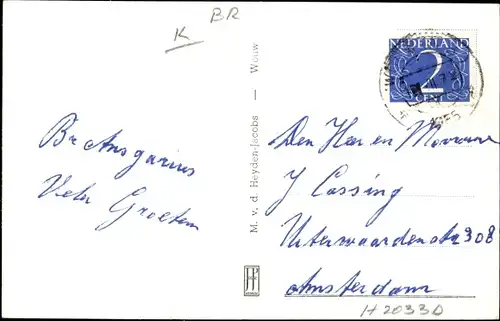 K
BR
Br Ansgarius
Vele Groeten
M. v. d. Heyden-Jacobs — Wouw
NEDERLAND
2
CENT
1955
Den Heer en Mevrouw
J Cossing
Uiterwaardenstr 308
Amsterdam
H 2033D